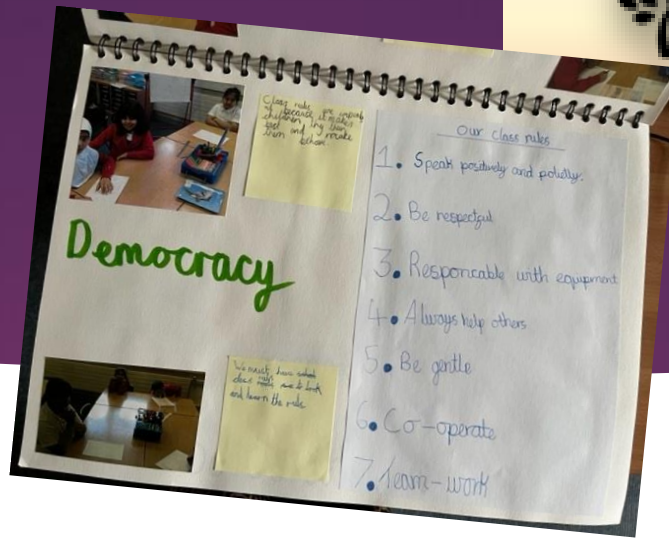 Class rules are
because it makes
children
and
them behave
Democracy
We must have school
class rules
and learn the rules
Our Class rules
1. Speak positively and politly.
2. Be respectful
3. Responcable with equipment
4. Always help others
5. Be gentle
6. Co-operate
7. Team-work